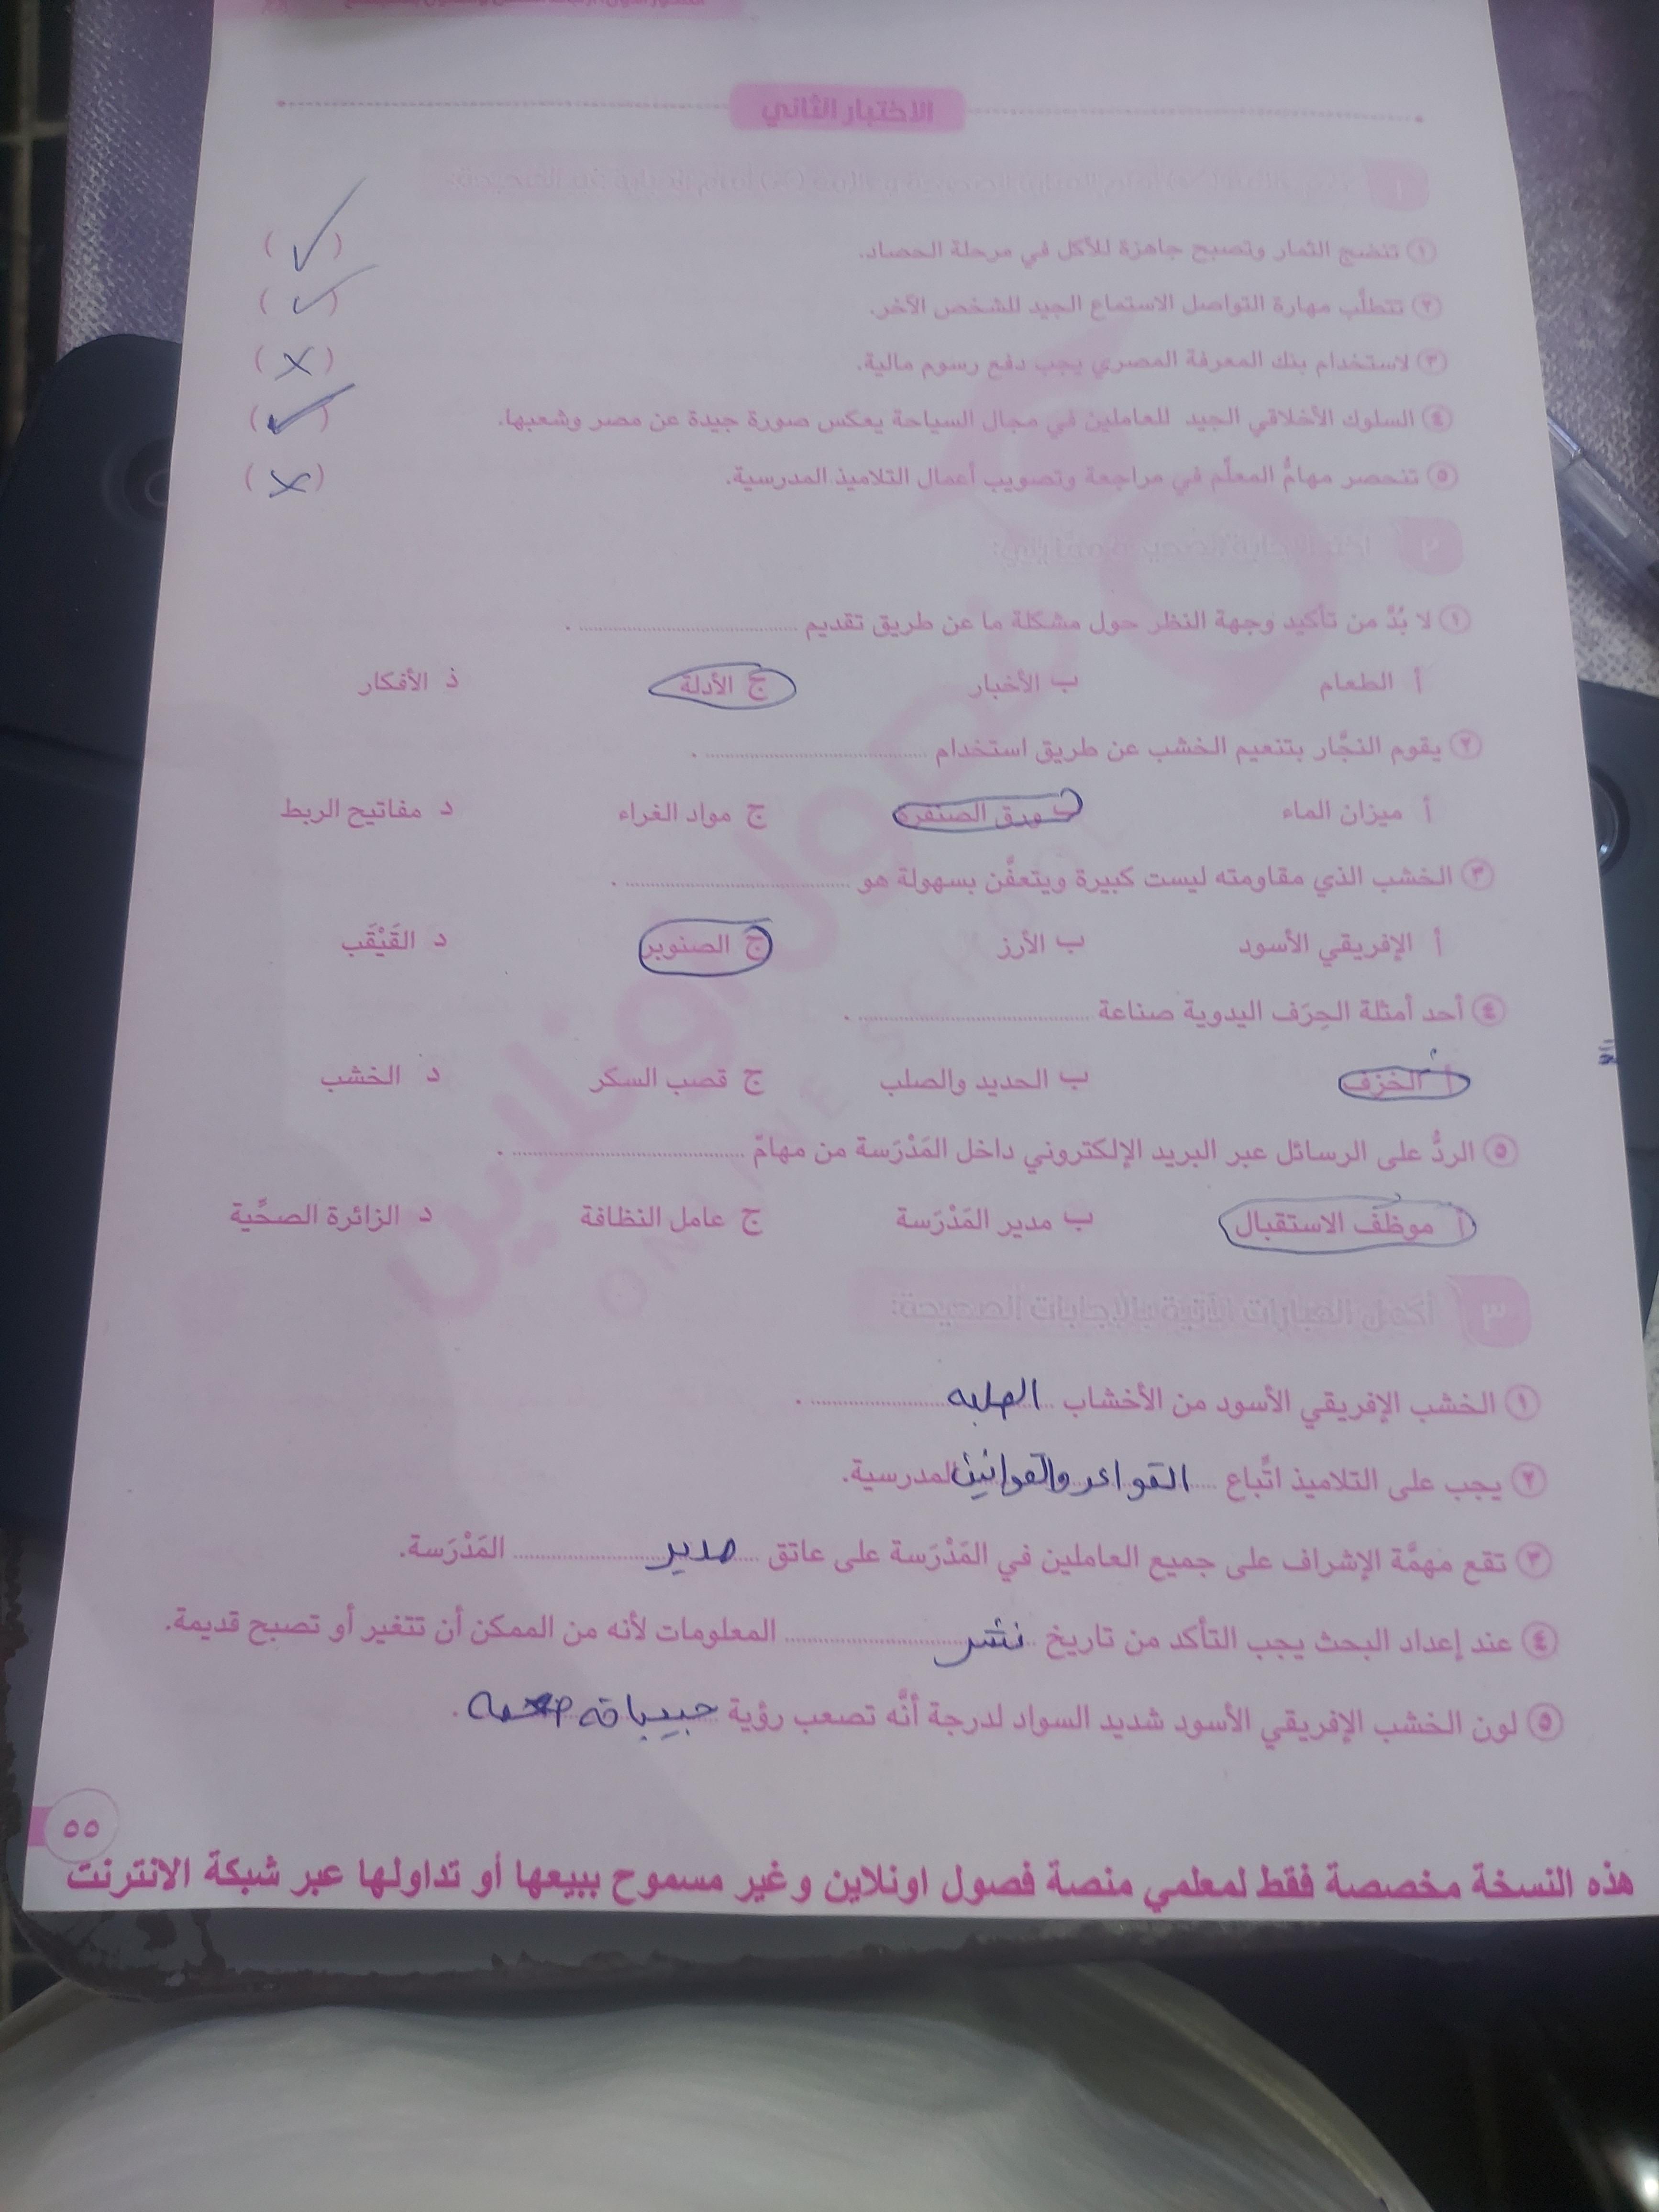 الاختبار الثاني
١ ضع علامة (✓) أمام العبارة الصحيحة وعلامة (✗) أمام العبارة غير الصحيحة:
١ تنضج الثمار وتصبح جاهزة للأكل في مرحلة الحصاد. (✓)
٢ تتطلَّب مهارة التواصل الاستماع الجيد للشخص الآخر. (✓)
٣ لاستخدام بنك المعرفة المصري يجب دفع رسوم مالية. (✗)
٤ السلوك الأخلاقي الجيد للعاملين في مجال السياحة يعكس صورة جيدة عن مصر وشعبها. (✓)
٥ تنحصر مهامُّ المعلِّم في مراجعة وتصويب أعمال التلاميذ المدرسية. (✗)
٢ اختر الإجابة الصحيحة مما يلي:
١ لا بُدَّ من تأكيد وجهة النظر حول مشكلة ما عن طريق تقديم .................... .
أ الطعام ب الأخبار ج الأدلة ذ الأفكار
٢ يقوم النجَّار بتنعيم الخشب عن طريق استخدام .................... .
أ ميزان الماء ب ورق الصنفرة ج مواد الغراء د مفاتيح الربط
٣ الخشب الذي مقاومته ليست كبيرة ويتعفَّن بسهولة هو .................... .
أ الإفريقي الأسود ب الأرز ج الصنوبر د القَيْقَب
٤ أحد أمثلة الحِرَف اليدوية صناعة .................... .
أ الخزف ب الحديد والصلب ج قصب السكر د الخشب
٥ الردُّ على الرسائل عبر البريد الإلكتروني داخل المَدْرَسة من مهامّ .................... .
أ موظَّف الاستقبال ب مدير المَدْرَسة ج عامل النظافة د الزائرة الصحِّية
٣ أكمل العبارات الآتية بالإجابات الصحيحة:
١ الخشب الإفريقي الأسود من الأخشاب الصلبه .
٢ يجب على التلاميذ اتِّباع القواعد والقوانين المدرسية.
٣ تقع مهمَّة الإشراف على جميع العاملين في المَدْرَسة على عاتق مدير المَدْرَسة.
٤ عند إعداد البحث يجب التأكد من تاريخ نشر المعلومات لأنه من الممكن أن تتغير أو تصبح قديمة.
٥ لون الخشب الإفريقي الأسود شديد السواد لدرجة أنَّه تصعب رؤية حبيباته .
٥٥
هذه النسخة مخصصة فقط لمعلمي منصة فصول اونلاين وغير مسموح ببيعها أو تداولها عبر شبكة الانترنت
فصول أونلاين
ONLINE SCHOOL